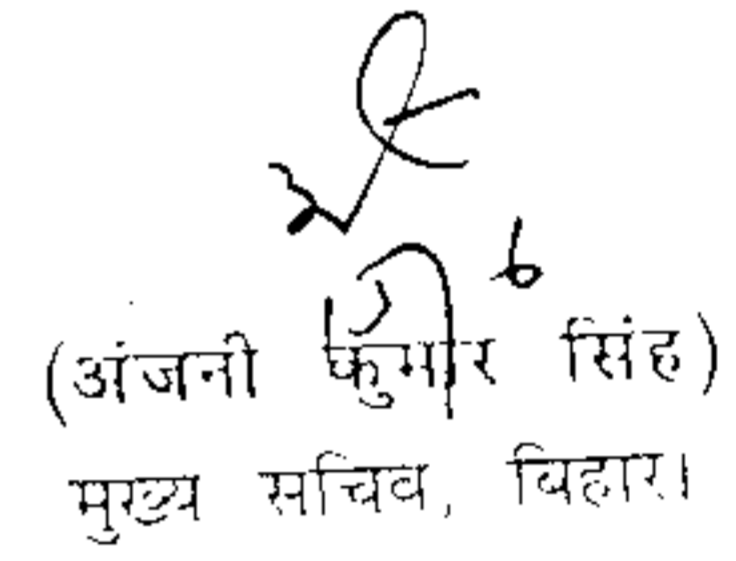 (अंजनी कुमार सिंह)
मुख्य सचिव, बिहार।